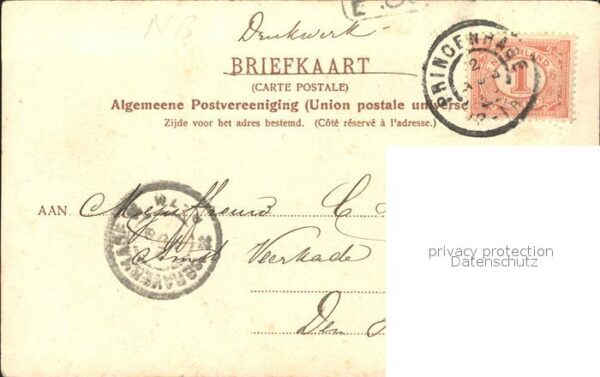 NB
Drukwerk
BRIEFKAART
(CARTE POSTALE)
Algemeene Postvereeniging (Union postale universe
Zijde voor het adres bestemd. (Côté réservé à l'adresse.)
PRINCENHAGE
NEDERLAND
1
AAN Mejuffrouw C
Amst Veerkade
Den
privacy protection
Datenschutz